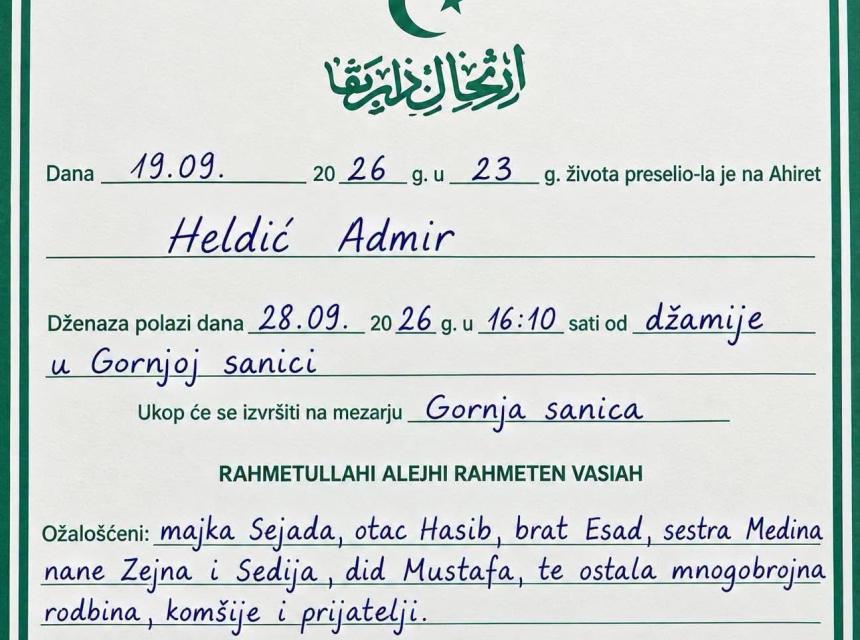 Dana 19.09. 20 26 g. u 23 g. života preselio-la je na Ahiret
Heldić Admir
Dženaza polazi dana 28.09. 20 26 g. u 16:10 sati od džamije
u Gornjoj sanici
Ukop će se izvršiti na mezarju Gornja sanica
RAHMETULLAHI ALEJHI RAHMETEN VASIAH
Ožalošćeni: majka Sejada, otac Hasib, brat Esad, sestra Medina
nane Zejna i Sedija, did Mustafa, te ostala mnogobrojna
rodbina, komšije i prijatelji.